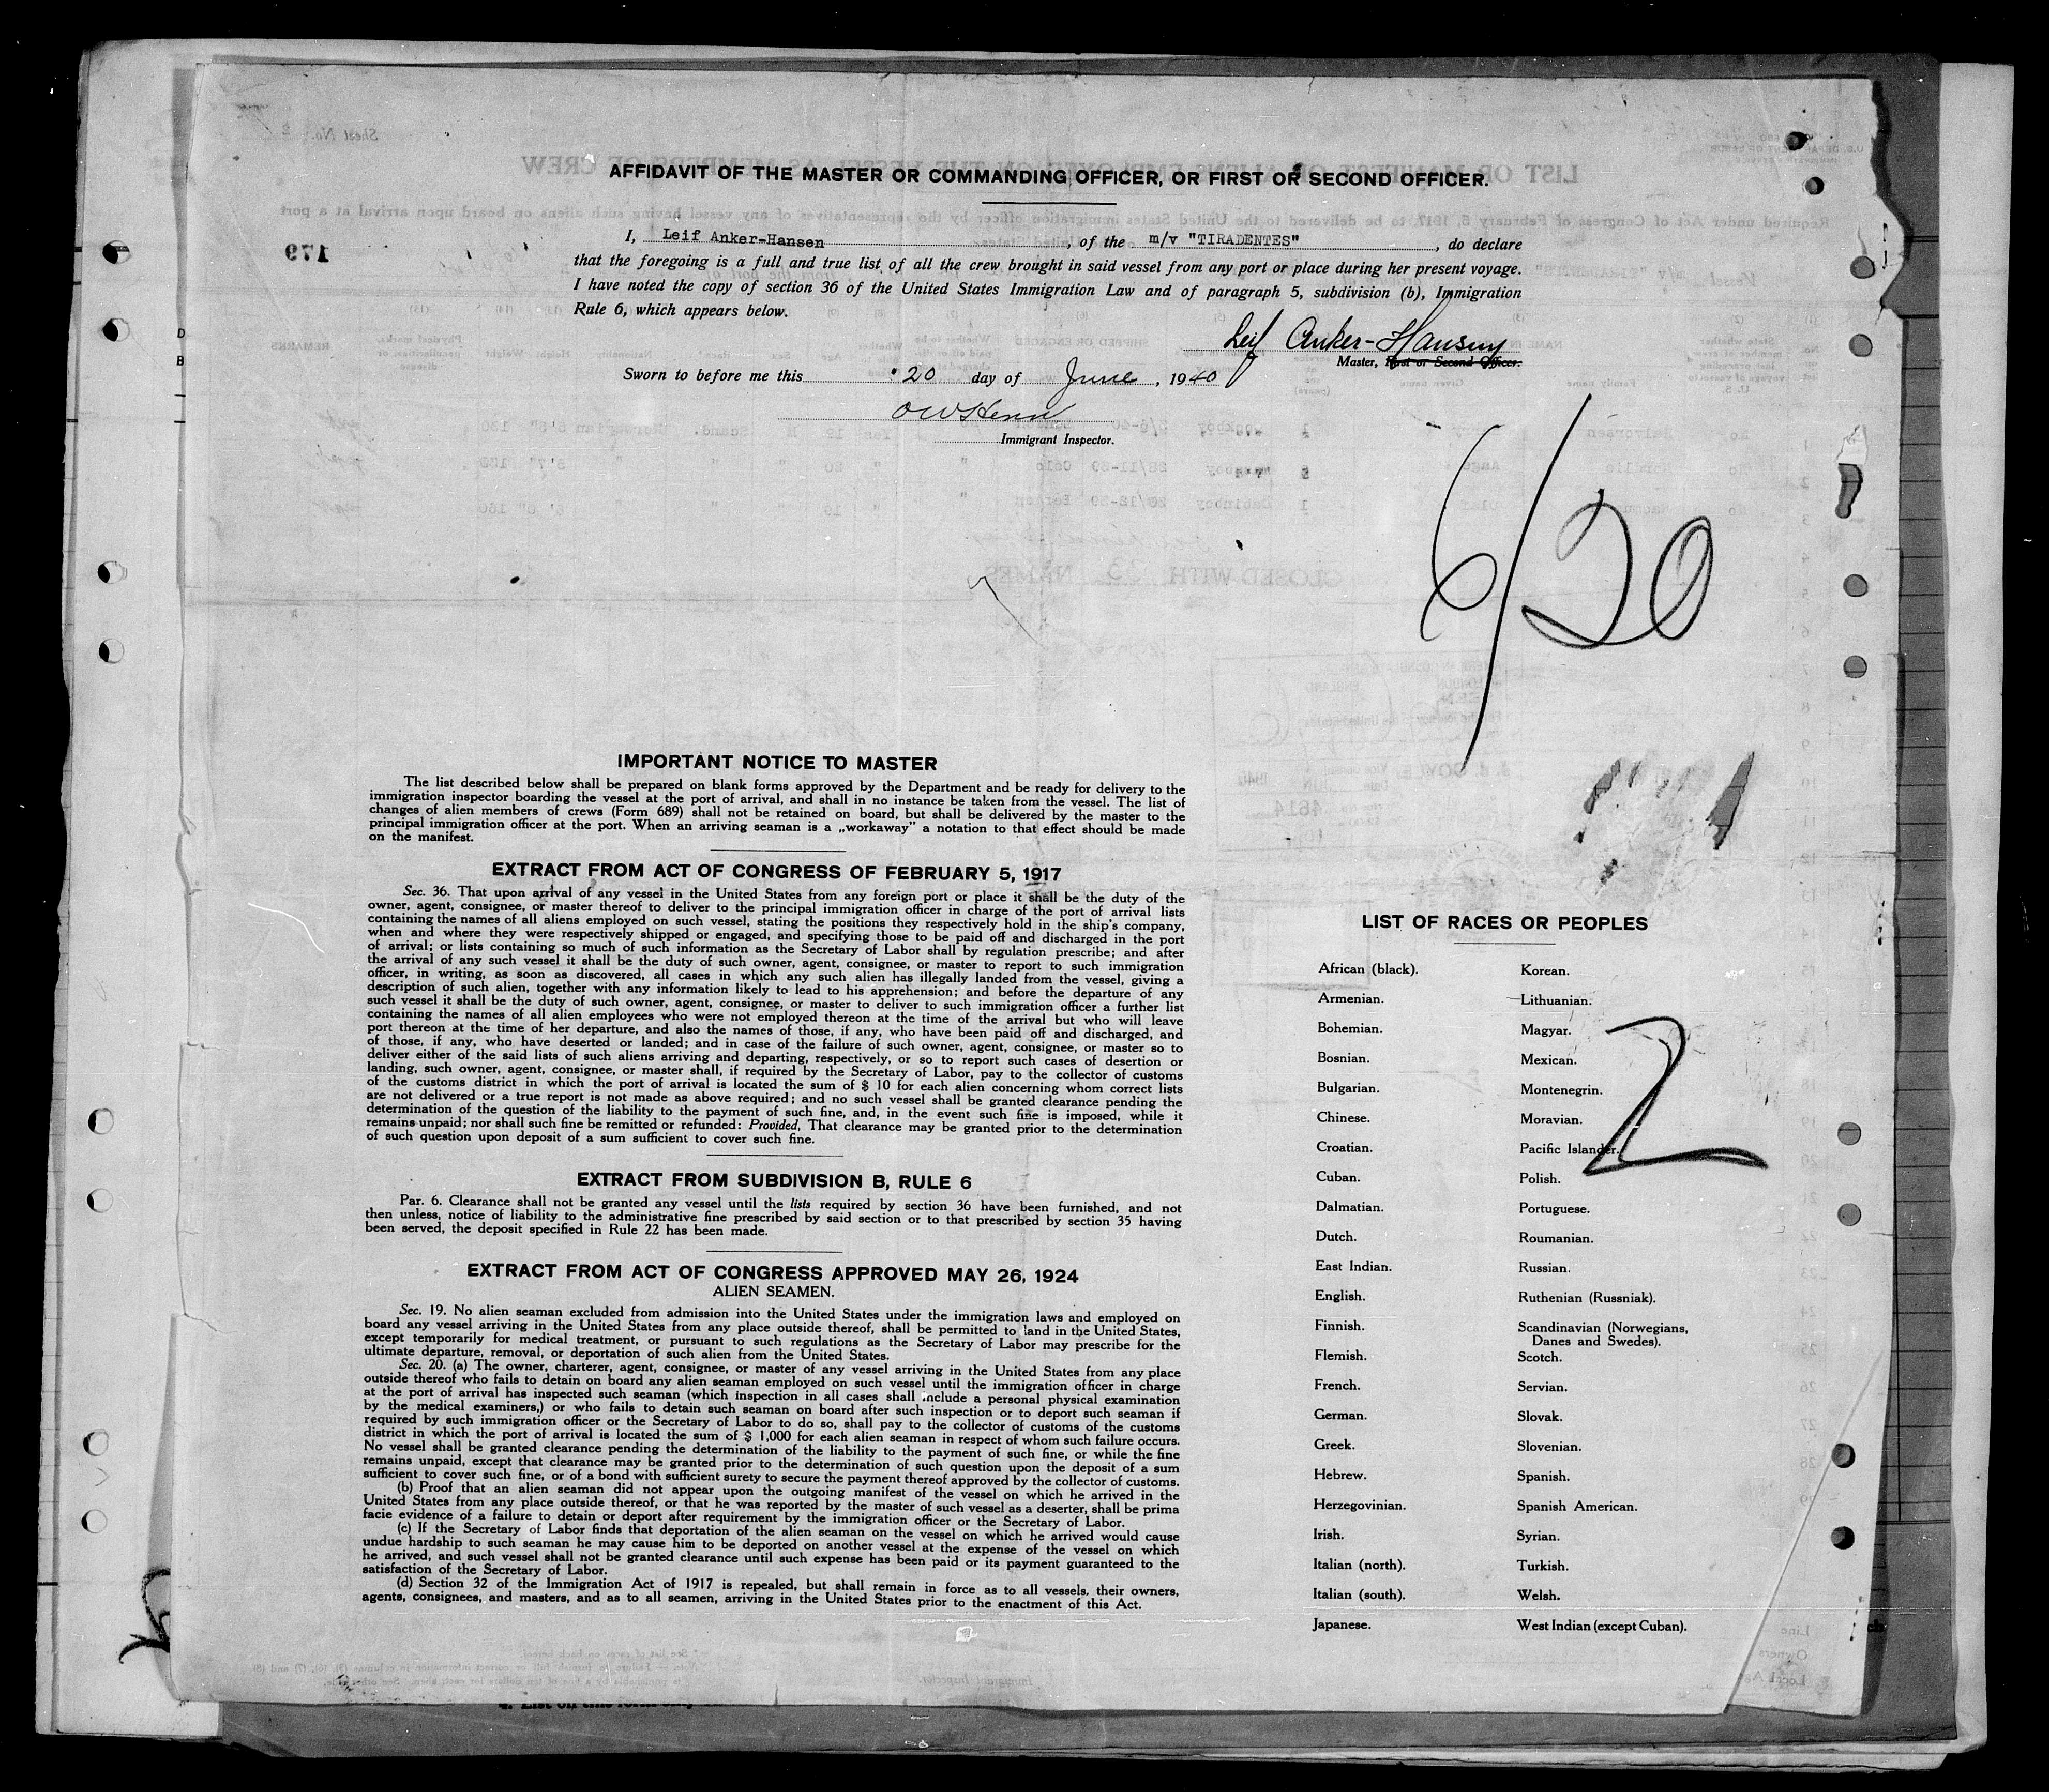 AFFIDAVIT OF THE MASTER OR COMMANDING OFFICER, OR FIRST OR SECOND OFFICER.
I, Leif Anker-Hansen, of the m/v "TIRADENTES", do declare
that the foregoing is a full and true list of all the crew brought in said vessel from any port or place during her present voyage.
I have noted the copy of section 36 of the United States Immigration Law and of paragraph 5, subdivision (b), Immigration
Rule 6, which appears below.
Leif Anker-Hansen
Master, First or Second Officer.
Sworn to before me this 20 day of June, 1940
Immigrant Inspector.
179
6/20
IMPORTANT NOTICE TO MASTER
The list described below shall be prepared on blank forms approved by the Department and be ready for delivery to the
immigration inspector boarding the vessel at the port of arrival, and shall in no instance be taken from the vessel. The list of
changes of alien members of crews (Form 689) shall not be retained on board, but shall be delivered by the master to the
principal immigration officer at the port. When an arriving seaman is a „workaway” a notation to that effect should be made
on the manifest.
EXTRACT FROM ACT OF CONGRESS OF FEBRUARY 5, 1917
Sec. 36. That upon arrival of any vessel in the United States from any foreign port or place it shall be the duty of the
owner, agent, consignee, or master thereof to deliver to the principal immigration officer in charge of the port of arrival lists
containing the names of all aliens employed on such vessel, stating the positions they respectively hold in the ship's company,
when and where they were respectively shipped or engaged, and specifying those to be paid off and discharged in the port
of arrival; or lists containing so much of such information as the Secretary of Labor shall by regulation prescribe; and after
the arrival of any such vessel it shall be the duty of such owner, agent, consignee, or master to report to such immigration
officer, in writing, as soon as discovered, all cases in which any such alien has illegally landed from the vessel, giving a
description of such alien, together with any information likely to lead to his apprehension; and before the departure of any
such vessel it shall be the duty of such owner, agent, consignee, or master to deliver to such immigration officer a further list
containing the names of all alien employees who were not employed thereon at the time of the arrival but who will leave
port thereon at the time of her departure, and also the names of those, if any, who have been paid off and discharged, and
of those, if any, who have deserted or landed; and in case of the failure of such owner, agent, consignee, or master so to
deliver either of the said lists of such aliens arriving and departing, respectively, or so to report such cases of desertion or
landing, such owner, agent, consignee, or master shall, if required by the Secretary of Labor, pay to the collector of customs
of the customs district in which the port of arrival is located the sum of $ 10 for each alien concerning whom correct lists
are not delivered or a true report is not made as above required; and no such vessel shall be granted clearance pending the
determination of the question of the liability to the payment of such fine, and, in the event such fine is imposed, while it
remains unpaid; nor shall such fine be remitted or refunded: Provided, That clearance may be granted prior to the determination
of such question upon deposit of a sum sufficient to cover such fine.
EXTRACT FROM SUBDIVISION B, RULE 6
Par. 6. Clearance shall not be granted any vessel until the lists required by section 36 have been furnished, and not
then unless, notice of liability to the administrative fine prescribed by said section or to that prescribed by section 35 having
been served, the deposit specified in Rule 22 has been made.
EXTRACT FROM ACT OF CONGRESS APPROVED MAY 26, 1924
ALIEN SEAMEN.
Sec. 19. No alien seaman excluded from admission into the United States under the immigration laws and employed on
board any vessel arriving in the United States from any place outside thereof, shall be permitted to land in the United States,
except temporarily for medical treatment, or pursuant to such regulations as the Secretary of Labor may prescribe for the
ultimate departure, removal, or deportation of such alien from the United States.
Sec. 20. (a) The owner, charterer, agent, consignee, or master of any vessel arriving in the United States from any place
outside thereof who fails to detain on board any alien seaman employed on such vessel until the immigration officer in charge
at the port of arrival has inspected such seaman (which inspection in all cases shall include a personal physical examination
by the medical examiners,) or who fails to detain such seaman on board after such inspection or to deport such seaman if
required by such immigration officer or the Secretary of Labor to do so, shall pay to the collector of customs of the customs
district in which the port of arrival is located the sum of $ 1,000 for each alien seaman in respect of whom such failure occurs.
No vessel shall be granted clearance pending the determination of the liability to the payment of such fine, or while the fine
remains unpaid, except that clearance may be granted prior to the determination of such question upon the deposit of a sum
sufficient to cover such fine, or of a bond with sufficient surety to secure the payment thereof approved by the collector of customs.
(b) Proof that an alien seaman did not appear upon the outgoing manifest of the vessel on which he arrived in the
United States from any place outside thereof, or that he was reported by the master of such vessel as a deserter, shall be prima
facie evidence of a failure to detain or deport after requirement by the immigration officer or the Secretary of Labor.
(c) If the Secretary of Labor finds that deportation of the alien seaman on the vessel on which he arrived would cause
undue hardship to such seaman he may cause him to be deported on another vessel at the expense of the vessel on which
he arrived, and such vessel shall not be granted clearance until such expense has been paid or its payment guaranteed to the
satisfaction of the Secretary of Labor.
(d) Section 32 of the Immigration Act of 1917 is repealed, but shall remain in force as to all vessels, their owners,
agents, consignees, and masters, and as to all seamen, arriving in the United States prior to the enactment of this Act.
LIST OF RACES OR PEOPLES
African (black). Korean.
Armenian. Lithuanian.
Bohemian. Magyar.
Bosnian. Mexican.
Bulgarian. Montenegrin.
Chinese. Moravian.
Croatian. Pacific Islander.
Cuban. Polish.
Dalmatian. Portuguese.
Dutch. Roumanian.
East Indian. Russian.
English. Ruthenian (Russniak).
Finnish. Scandinavian (Norwegians,
Danes and Swedes).
Flemish. Scotch.
French. Servian.
German. Slovak.
Greek. Slovenian.
Hebrew. Spanish.
Herzegovinian. Spanish American.
Irish. Syrian.
Italian (north). Turkish.
Italian (south). Welsh.
Japanese. West Indian (except Cuban).
2